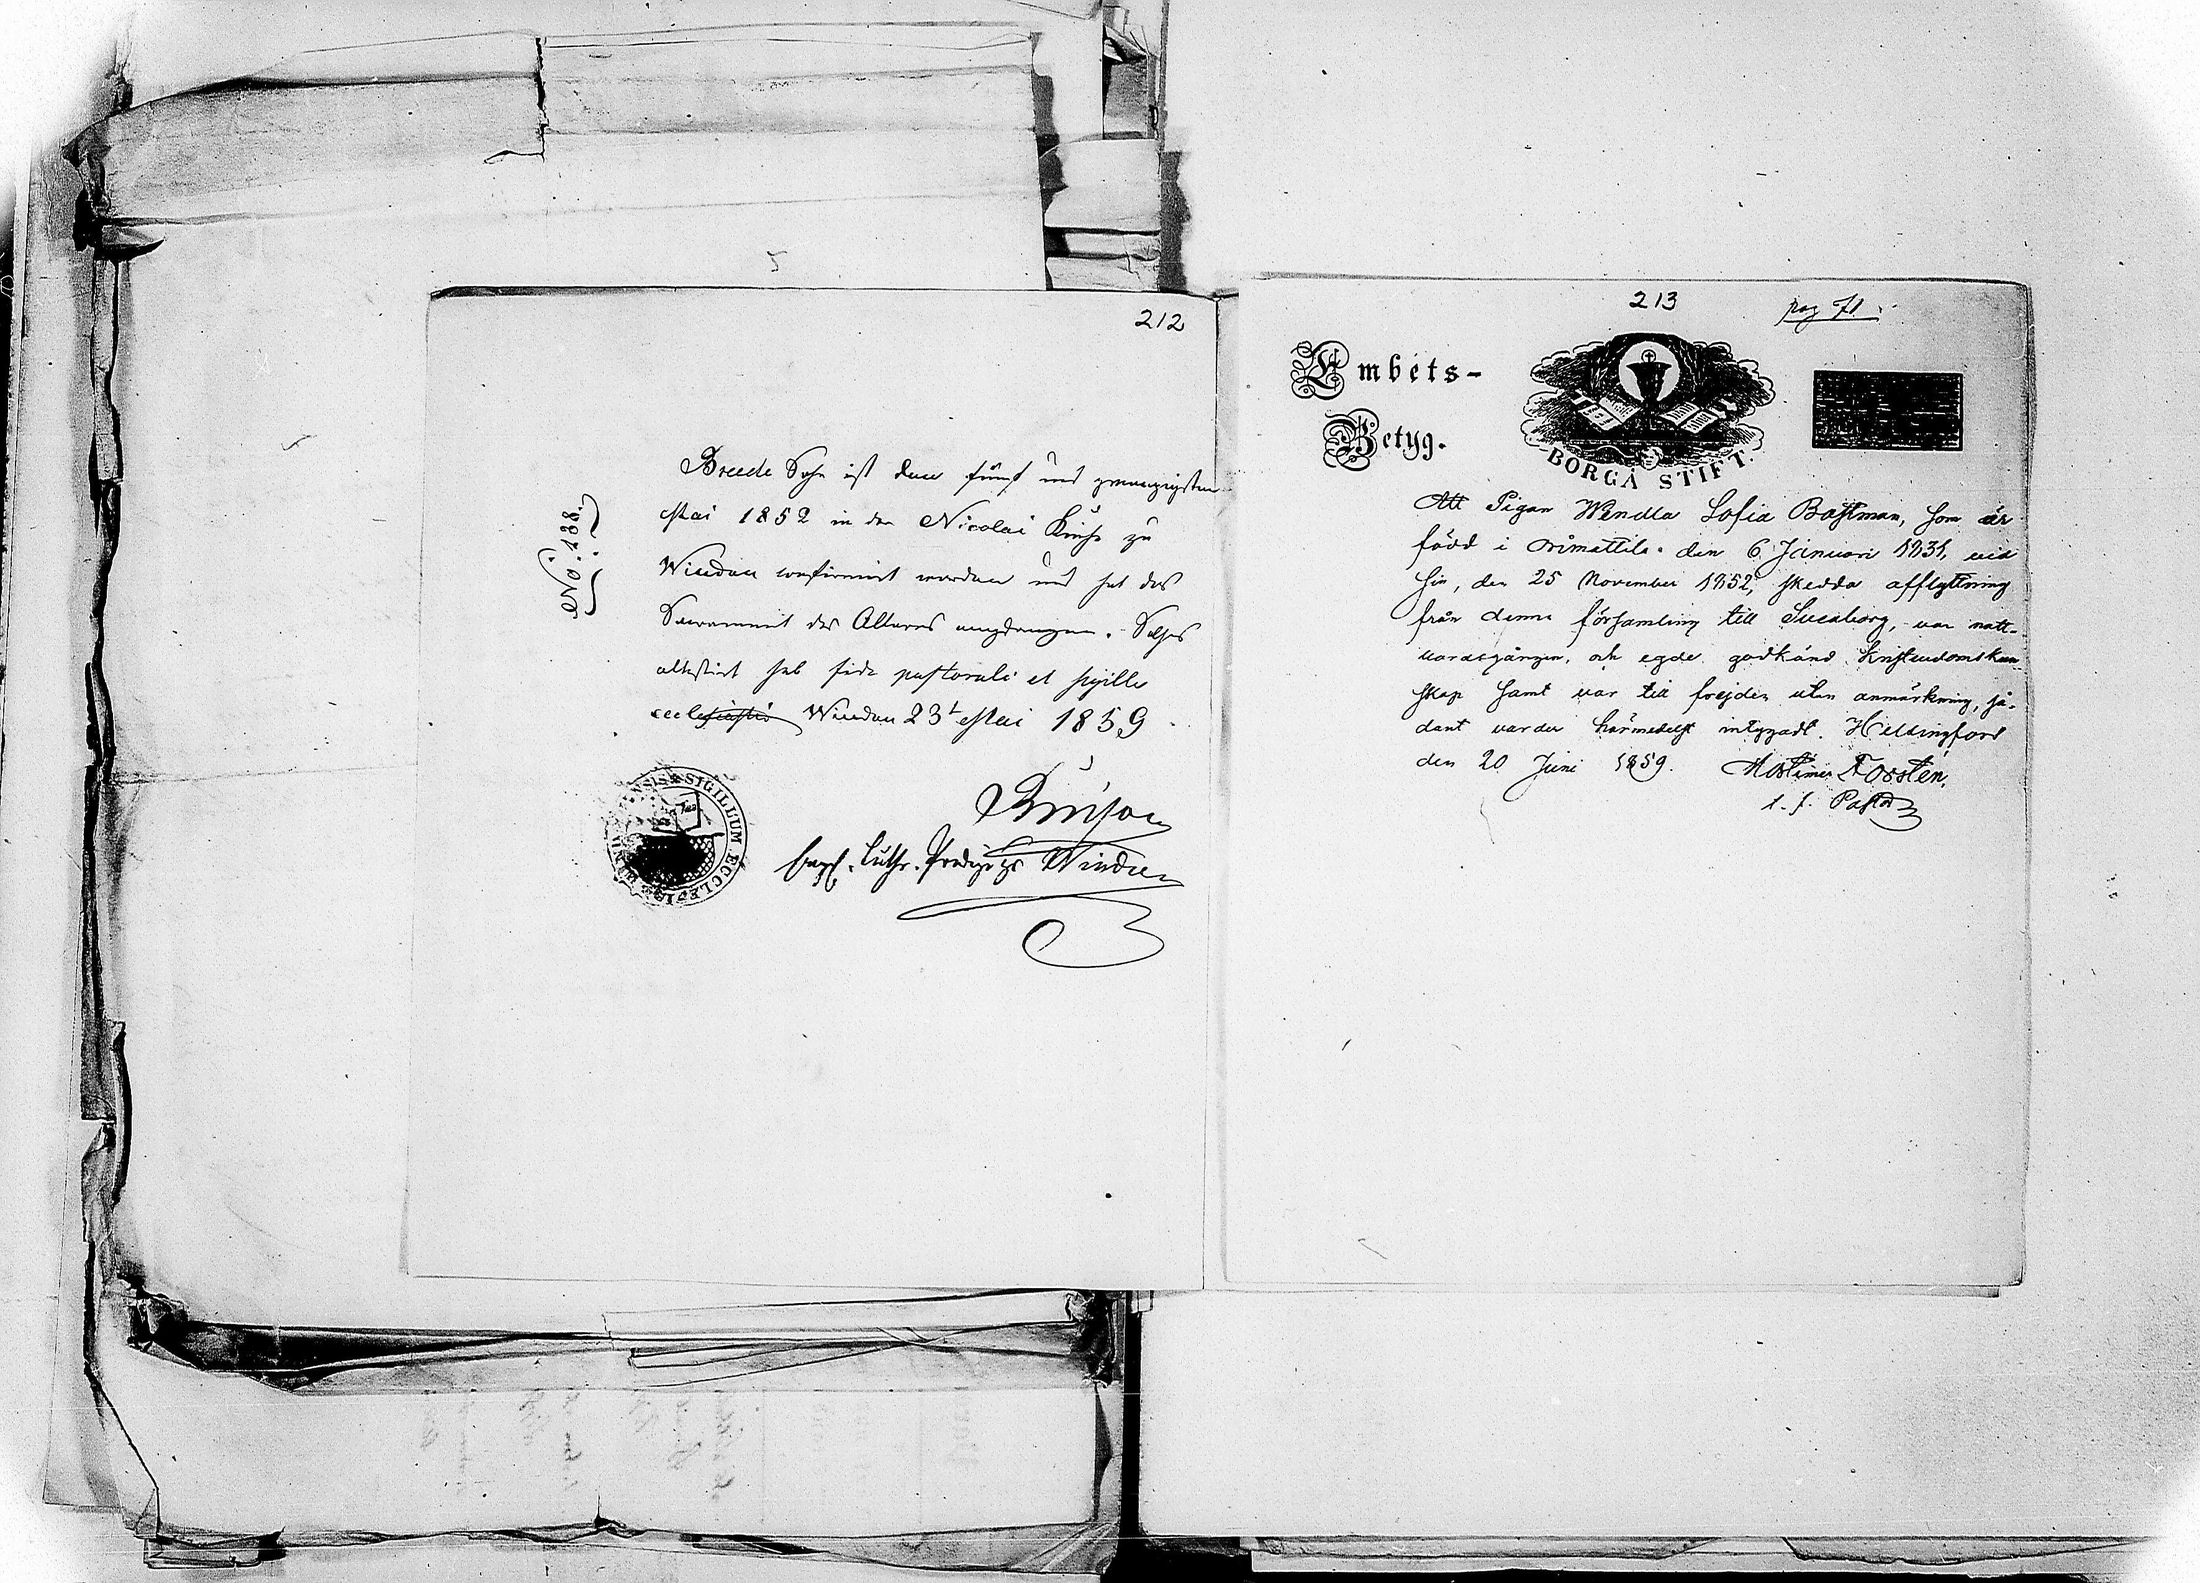 212
No. 138.
Breede Sohn ist den fünf und zwanzigsten
Mai 1852 in der Nicolai Kirche zu
Windau confirmirt worden und hat das
Sacrament des Altares empfangen. Solches
attestirt sub fide pastorali et sigillo
ecclesiastico Windau 23t Mai 1859
luth. Prediger zu Windau
SIGILLUM ECCLESIAE
213
pag 71
Embets-
Betyg.
BORGÅ STIFT.
Att Pigan Wendla Sofia Bostman, som är
född i Orimattila den 6 Januari 1831, vid
sin, den 25 November 1852, skedda afflyttning
från denna församling till Sveaborg, var natt-
vardsgången, och egde godkänd kristendomskun-
skap samt var till frejden utan anmärkning, så-
dant varder härmedelst intygadt. Helsingfors
den 20 Juni 1859.
Forstén,
Pastor